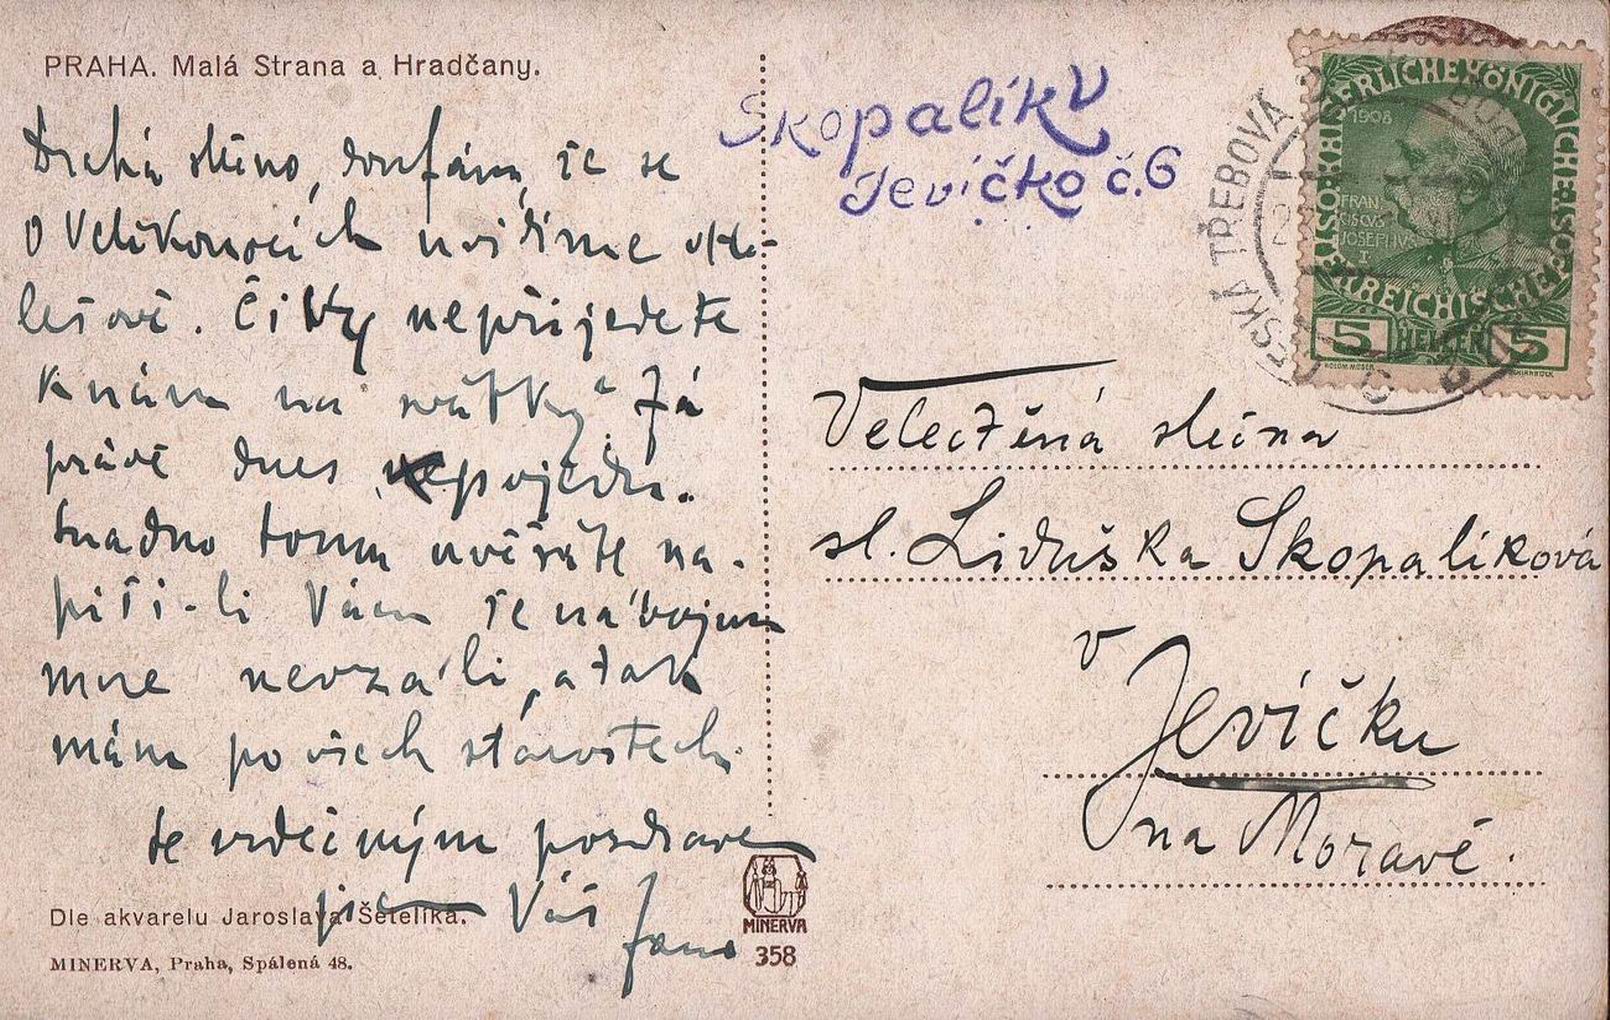 PRAHA. Malá Strana a Hradčany.
Drahá slečno, doufám, že se
o Velikonocích uvidíme v Kle-
tešově. Či Vy nepřijedete
k nám na svátky? Já
právě dnes pojedu.
Snadno tomu uvěříte na-
píši-li Vám že na vojnu
mne nevzali, a tak
mám po všech starostech.
Se srdečným pozdravem
jsem Váš Jano
Dle akvarelu Jaroslava Šetelíka.
MINERVA, Praha, Spálená 48.
MINERVA
358
Skopalíků
Jevíčko č. 6
ČESKÁ TŘEBOVÁ
KAISERLICHE KÖNIGLICHE ÖSTERREICHISCHE POST
1908
FRAN
CISCVS
IOSEPHVS
I
5 HELLER 5
KOLOM. MOSER
Velectěná slečna
sl. Liduška Skopalíková
v
Jevíčku
na Moravě.